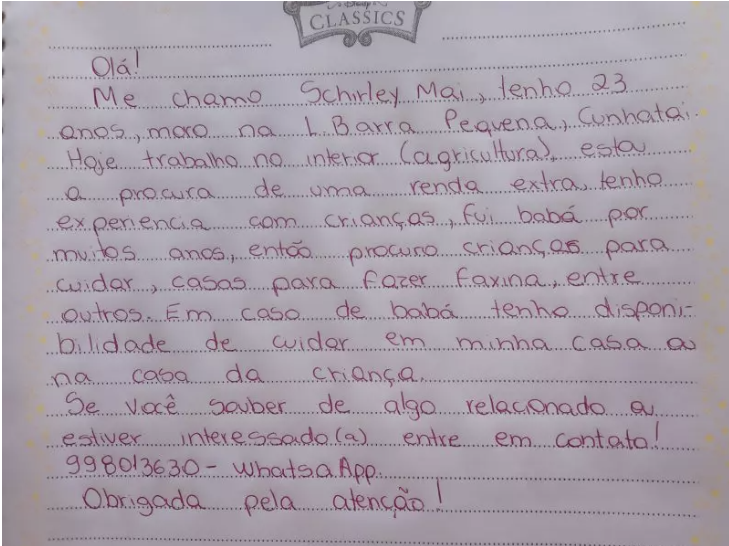 CLASSICS
Olá!
Me chamo Schirley Mai, tenho 23
anos, moro na L. Barra Pequena, Cunhataí.
Hoje trabalho no interior (agricultura), esta
a procura de uma renda extra, tenho
experiencia com crianças, fui babá por
muitos anos, então procuro crianças para
cuidar, casas para fazer faxina, entre
outros. Em caso de babá tenho disponi-
bilidade de cuidar em minha casa ou
na casa da criança.
Se você souber de algo relacionado ou
estiver interessado(a) entre em contato!
998013630 - WhatsaApp.
Obrigada pela atenção!